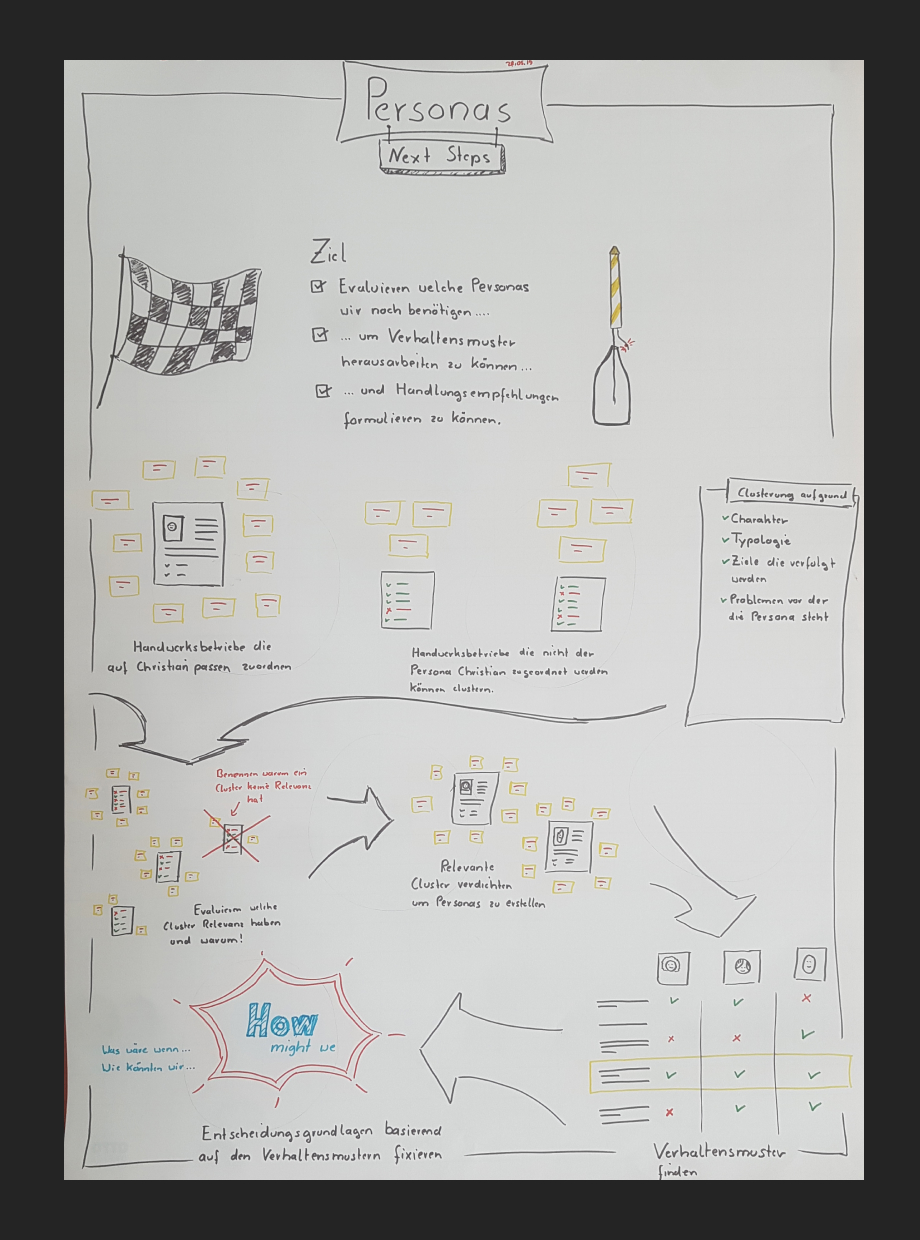 28.05.19
Personas
Next Steps
Ziel
Evaluieren welche Personas
wir noch benötigen....
... um Verhaltensmuster
herausarbeiten zu können...
... und Handlungsempfehlungen
formulieren zu können.
Clusterung aufgrund
Charakter
Typologie
Ziele die verfolgt
werden
Problemen vor der
die Persona steht
Handwerksbetriebe die
auf Christian passen zuordnen
Handwerksbetriebe die nicht der
Persona Christian zugeordnet werden
können clustern.
Benennen warum ein
Cluster keine Relevanz
hat
Evaluieren welche
Cluster Relevanz haben
und warum!
Relevante
Cluster verdichten
um Personas zu erstellen
How
might we
Was wäre wenn...
Wie könnten wir...
Entscheidungsgrundlagen basierend
auf den Verhaltensmustern fixieren
Verhaltensmuster
finden